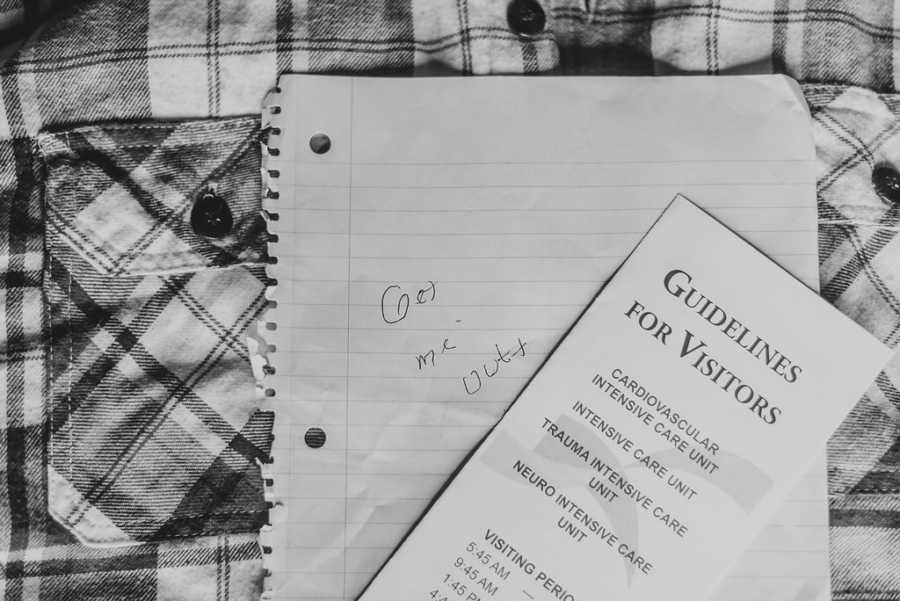 Get
me
out
GUIDELINES
FOR VISITORS
CARDIOVASCULAR
INTENSIVE CARE UNIT
INTENSIVE CARE UNIT
TRAUMA INTENSIVE CARE
UNIT
NEURO INTENSIVE CARE
UNIT
VISITING
5:45 AM
9:45 AM
1:45